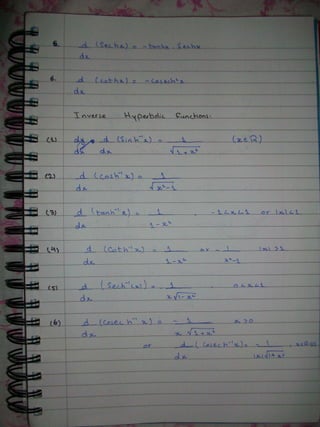 5. d/dx (Sechx) = -tanhx . Sechx
6. d/dx (cothx) = -cosech²x
Inverse Hyperbolic Functions:
(1) d/dx (Sinh⁻¹x) = 1/√1+x² (x∈R)
(2) d/dx (cosh⁻¹x) = 1/√x²-1
(3) d/dx (tanh⁻¹x) = 1/1-x² , -1<x<1 or |x|<1
(4) d/dx (Coth⁻¹x) = 1/1-x² or -1/x²-1 |x|>1
(5) d/dx (Sech⁻¹(x)) = -1/x√1-x² , 0<x<1
(6) d/dx (Cosech⁻¹x) = -1/x√1+x² x>0
or d/dx (Cosech⁻¹x) = -1/|x|√1+x²